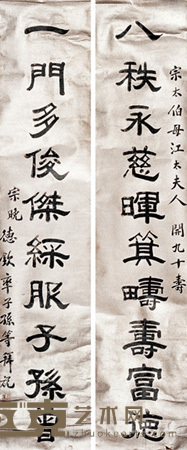 宗太伯母江太夫人 開九十壽
八秩永慈暉箕疇壽富德
一門多俊傑綵服子孫曾
德欽率子孫等拜祝